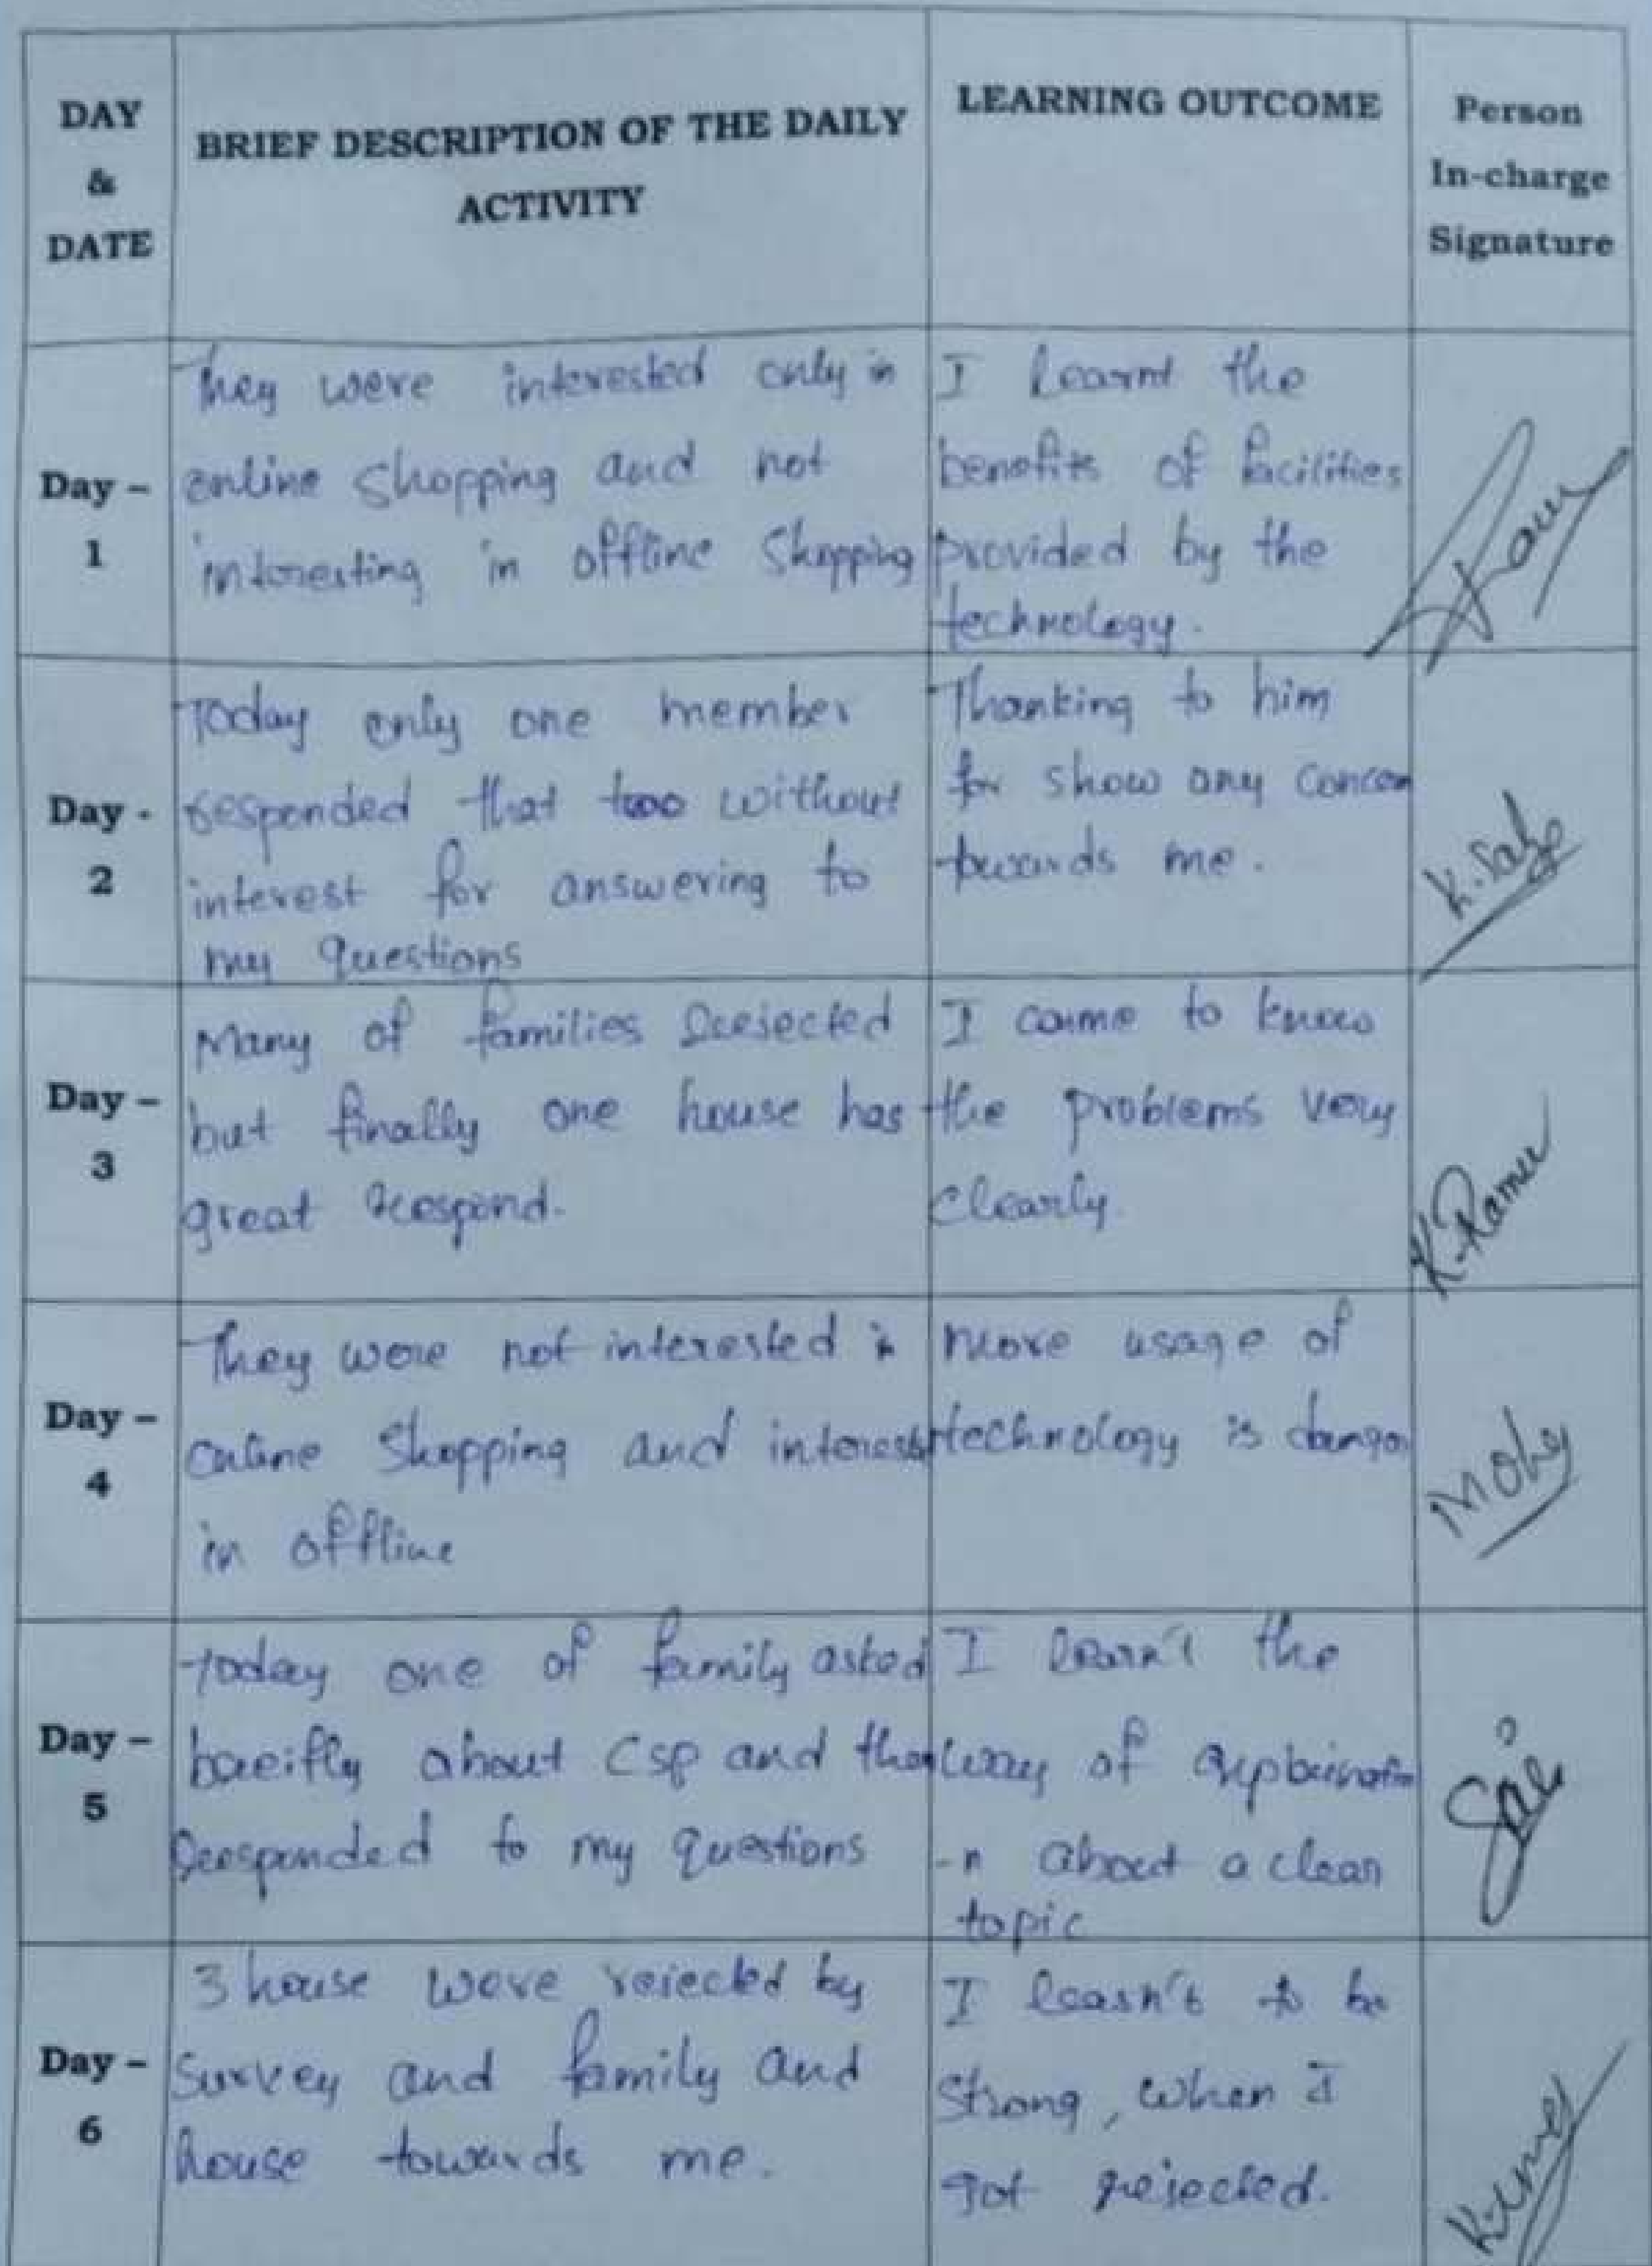 DAY
&
DATE
BRIEF DESCRIPTION OF THE DAILY
ACTIVITY
LEARNING OUTCOME
Person
In-charge
Signature
Day –
1
They were interested only in
online shopping and not
interesting in offline Shopping
I learnt the
benefits of facilities
provided by the
technology.
Day -
2
Today only one member
responded that too without
interest for answering to
my questions
Thanking to him
for show any concern
towards me.
Day –
3
Many of families rejected
but finally one house has
great respond.
I came to know
the problems very
clearly.
K.Ramu
Day –
4
They were not interested in
online shopping and interest
in offline
more usage of
technology is danger
Day –
5
today one of family asked
about CSP and then
responded to my questions
I learn't the
way of
-n about a clear
topic
Sai
Day –
6
3 house were rejected by
survey and family and
house towards me.
I learn't to be
strong, when I
got rejected.